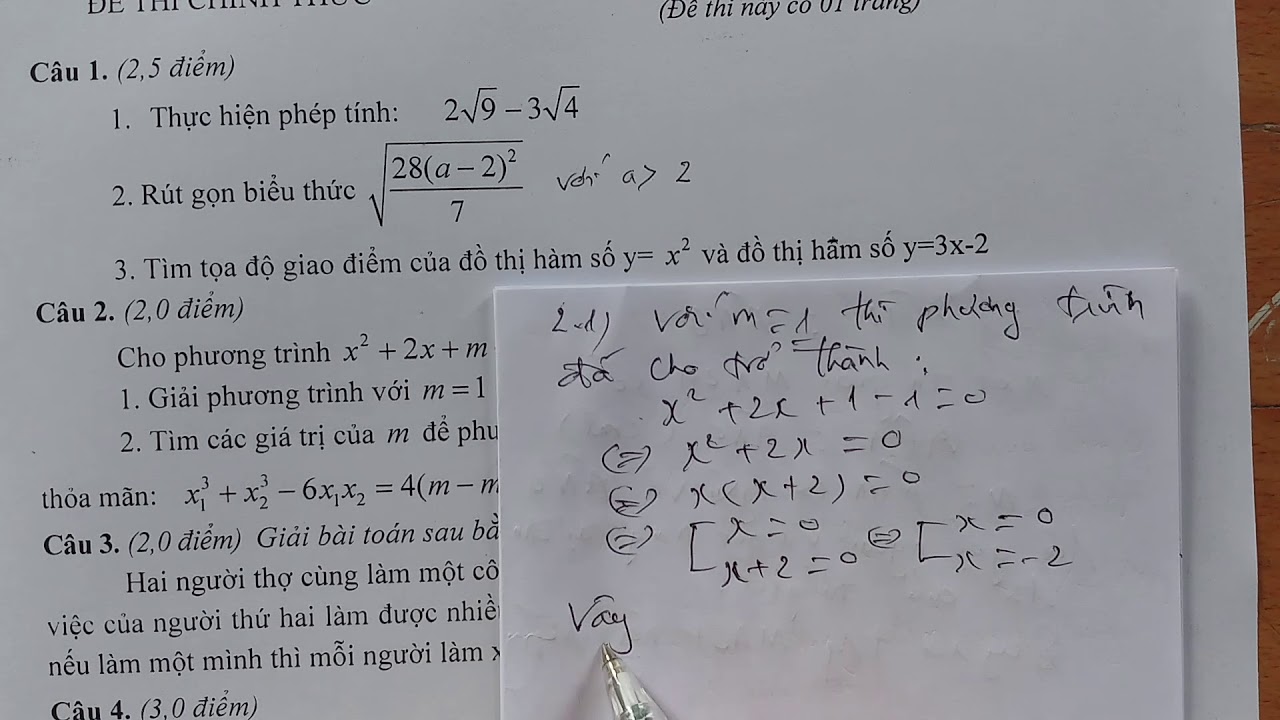 ĐỀ THI CHÍNH THỨC
(Đề thi này có 01 trang)
Câu 1. (2,5 điểm)
1. Thực hiện phép tính: 2√9 − 3√4
2. Rút gọn biểu thức √(28(a − 2)²/7) với a > 2
3. Tìm tọa độ giao điểm của đồ thị hàm số y= x² và đồ thị hàm số y=3x-2
Câu 2. (2,0 điểm)
Cho phương trình x² + 2x + m
1. Giải phương trình với m = 1
2. Tìm các giá trị của m để phu
thỏa mãn: x₁³ + x₂³ − 6x₁x₂ = 4(m − m
Câu 3. (2,0 điểm) Giải bài toán sau bằ
Hai người thợ cùng làm một cô
việc của người thứ hai làm được nhiề
nếu làm một mình thì mỗi người làm x
Câu 4. (3,0 điểm)
2.1) với m = 1 thì phương trình
đã cho trở thành :
x² + 2x + 1 − 1 = 0
(=) x² + 2x = 0
(=) x(x + 2) = 0
(=) [ x = 0 (=) [ x = 0
x + 2 = 0 x = −2
Vậy